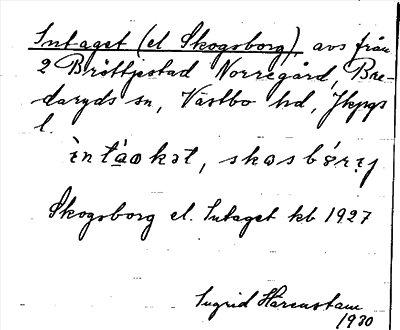 Intaget (el Skogsborg), avs från
2 Bröttjestad Norregård, Bre-
daryds sn, Västbo hd, Jkpgs
l.
ìntá̱ɑkət, skɷsbórij
Skogsborg el. Intaget kb 1927
Ingrid Härenstam
1930